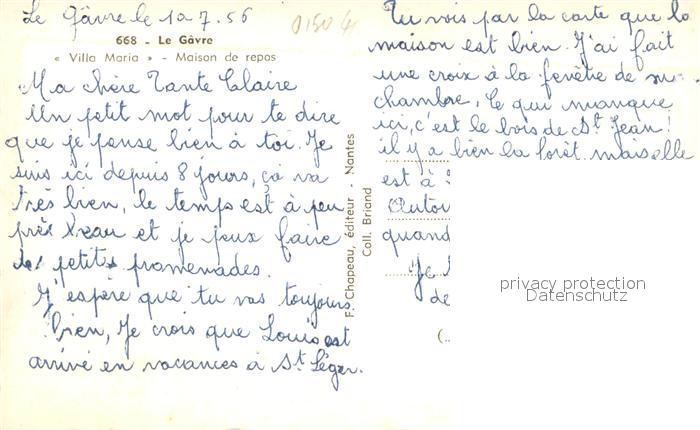 Le Gâvre le 10.7.56
668 - Le Gâvre
« Villa Maria » - Maison de repos
Ma chère Tante Claire
Un petit mot pour te dire
que je pense bien à toi. Je
suis ici depuis 8 jours, ça va
très bien, le temps est à peu
près beau et je peux faire
des petites promenades.
J'espère que tu vas toujours
bien, Je crois que Louis est
arrivé en vacances à St Léger.
F. Chapeau, éditeur - Nantes
Coll. Briand
Tu vois par la carte que la
maison est bien. J'ai fait
une croix à la fenêtre de ma
chambre. Ce qui manque
ici, c'est le bois de St Jean!
il y a bien la forêt mais elle
est à
Autou
quand
Je
de
privacy protection
Datenschutz